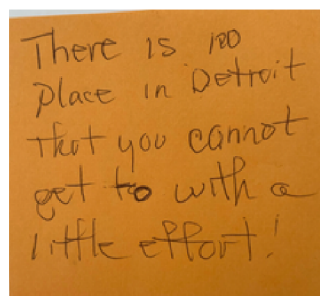 There is no
place in Detroit
that you cannot
get to with a
little effort!